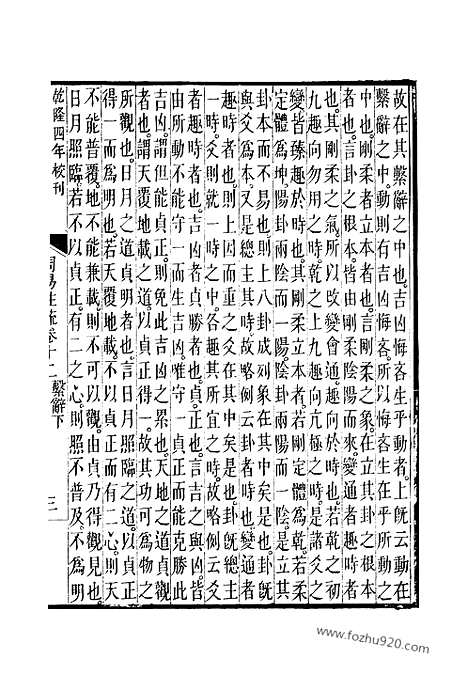 故在其繫辭之中也。吉凶悔吝生乎動者。上既云動在
繫辭之中。動則有吉凶悔吝。所以悔吝生在乎所動之
中也。剛柔者立本者也。言剛柔之象。在立其卦之根本
者也。言卦之根本。皆由剛柔陰陽而來。變通者趣時者
也。其剛柔之氣。所以改變會通。趣向於時也。若乾之初
九趣向勿用之時。乾之上九趣向亢極之時。是諸爻之
變皆臻趣於時也。其剛柔立本者。若剛定體為乾。若柔
定體為坤。陽卦兩陰而一陽。陰卦兩陽而一陰。是立其
卦本而不易也。則上八卦成列象在其中矣是也。卦既
與爻為本。又是總主其時。故略例云卦者時也。變通者
趣時者也。則上因而重之爻在其中矣是也。卦既總主
一時。爻則就一時之中。各趣其所宜之時。故略例云爻
者趣時者也。吉凶者貞勝者也。貞正也。言吉之與凶皆
由所動不能守一而生吉凶。唯守一貞正而能克勝此
吉凶。謂但能貞正。則免此吉凶之累也。天地之道貞觀
者也。謂天覆地載之道。以貞正得一。故其功可為物之
所觀也。日月之道貞明者也。言日月照臨之道。以貞正
得一而為明也。若天覆地載。不以貞正而有二心。則天
不能普覆。地不能兼載。則不可以觀。由貞乃得觀見也。
日月照臨。若不以貞正。有二之心。則照不普及。不為明
乾隆四年校刊 周易注疏卷十二 繫辭下
www.fozhu920.com